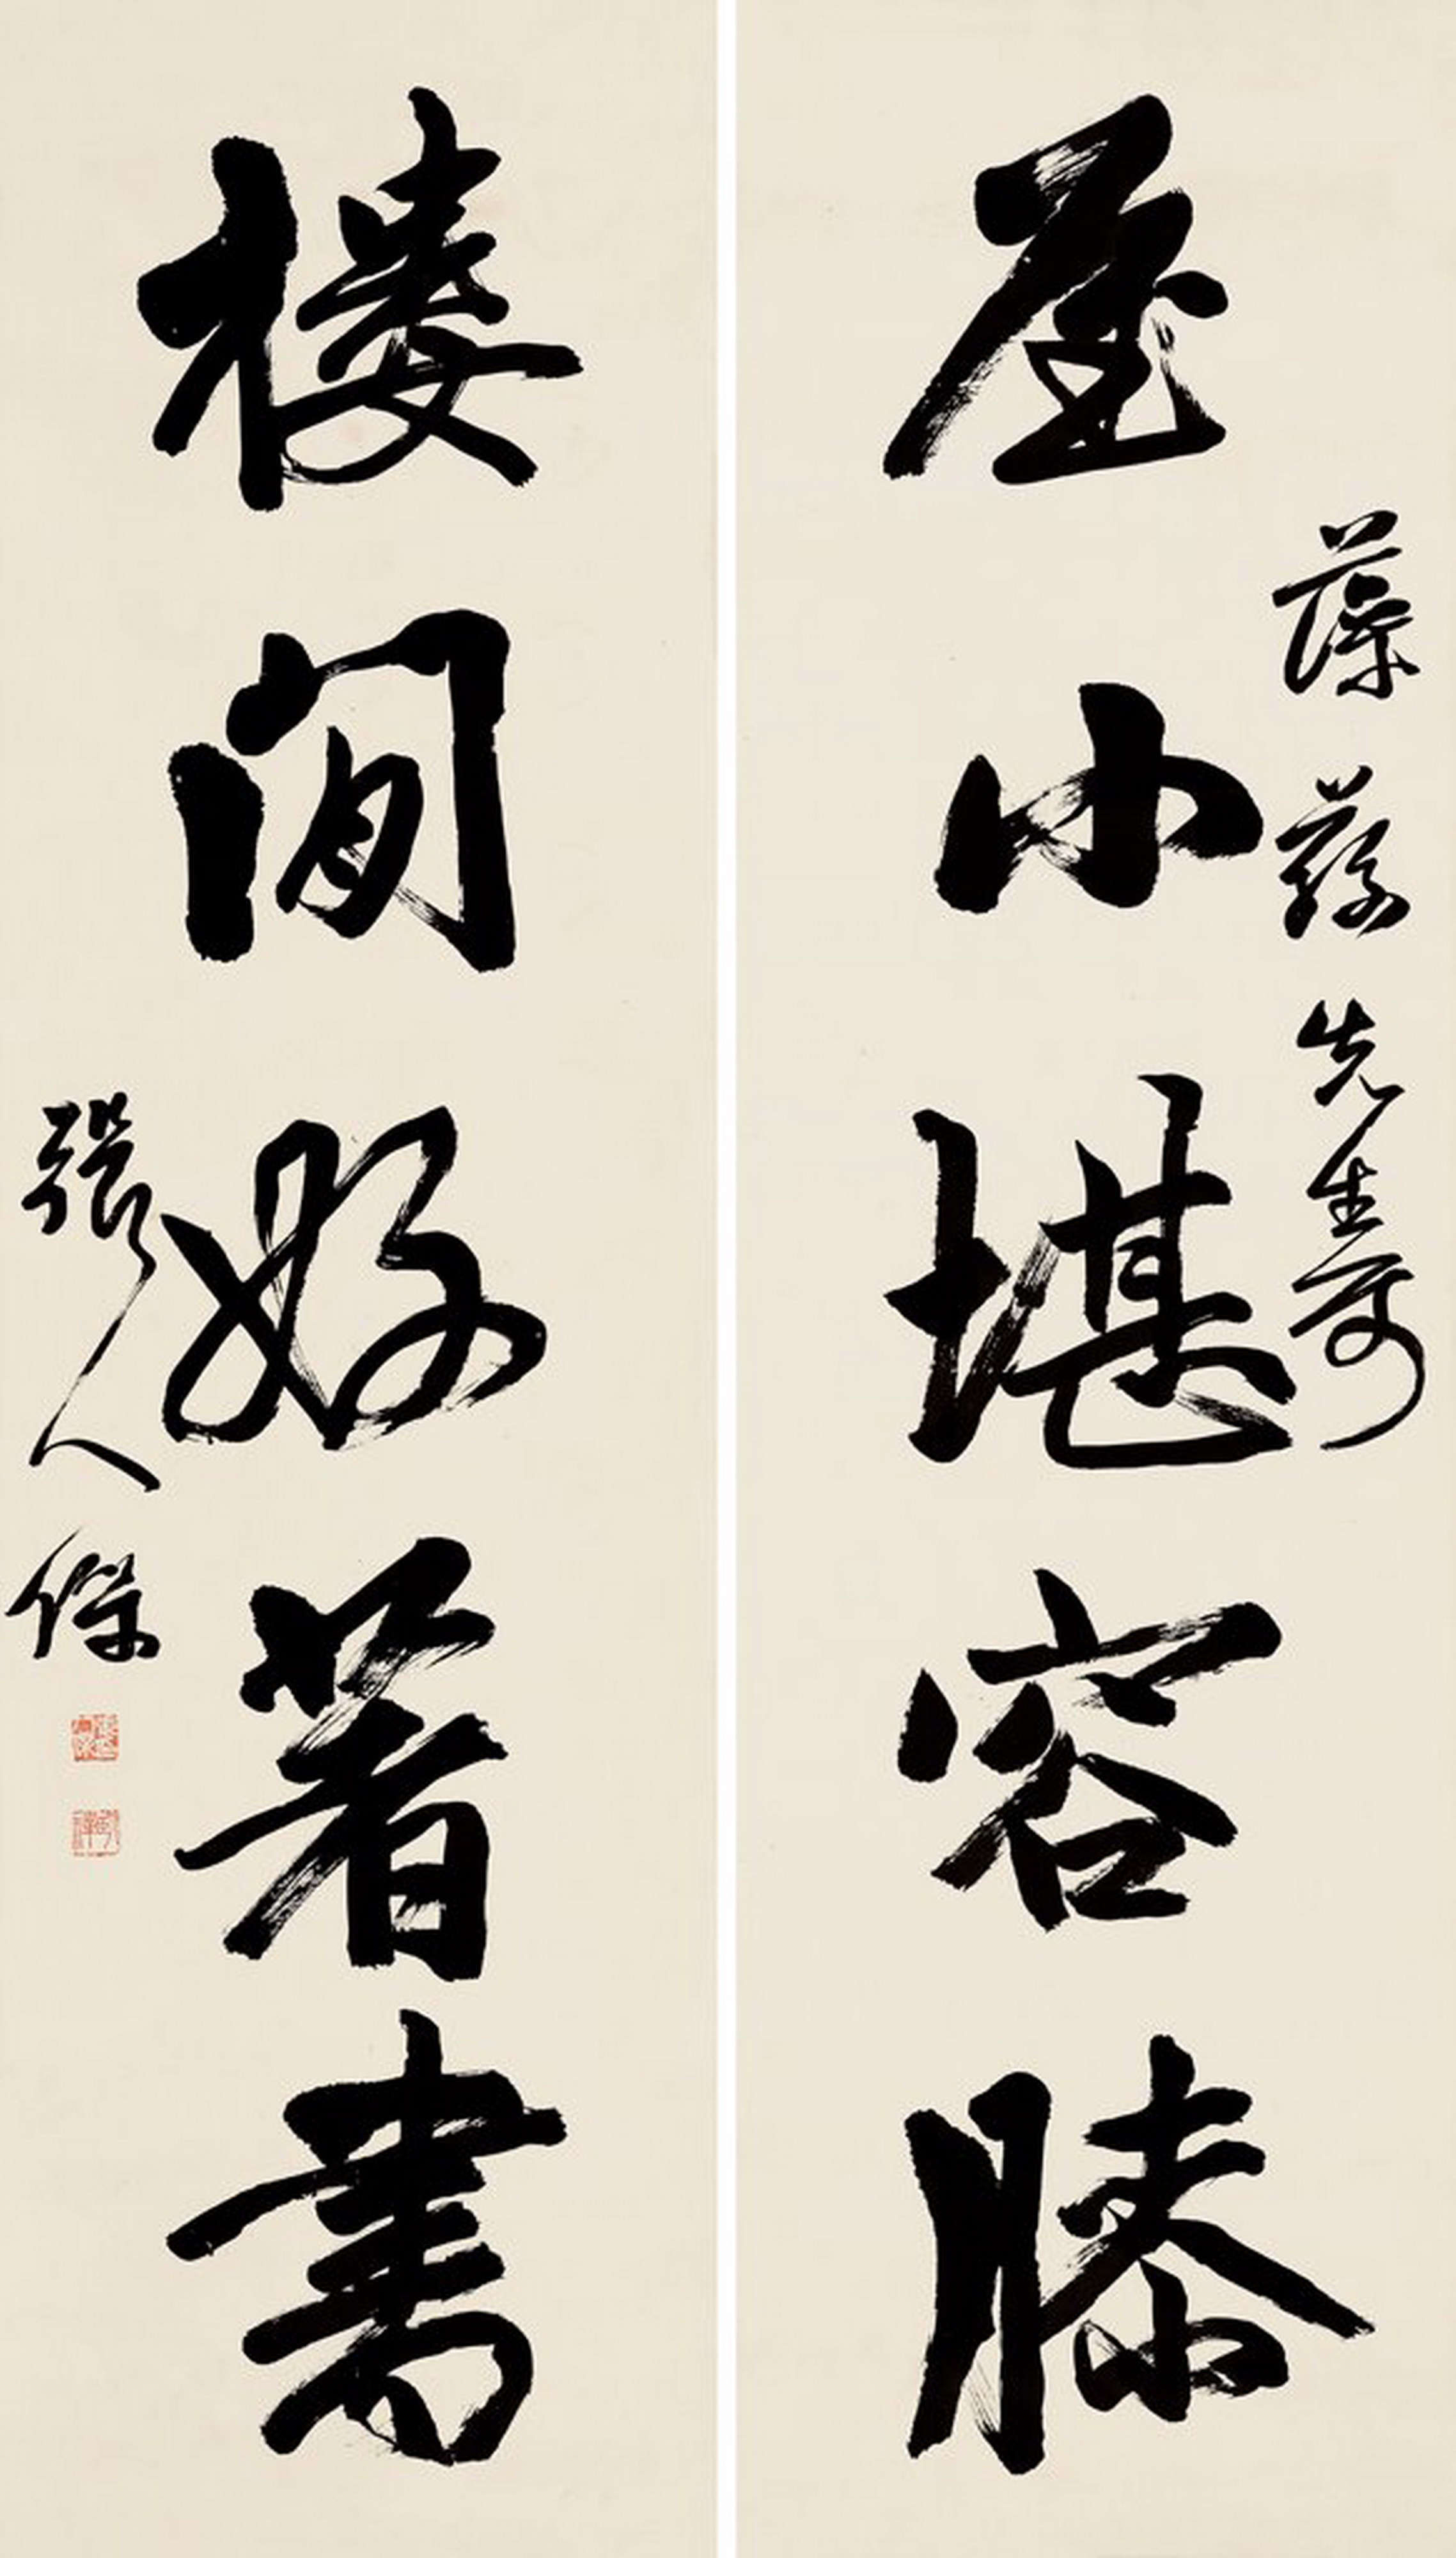 藻蓀先生屬
屋小堪容膝
樓閒好著書
張人傑